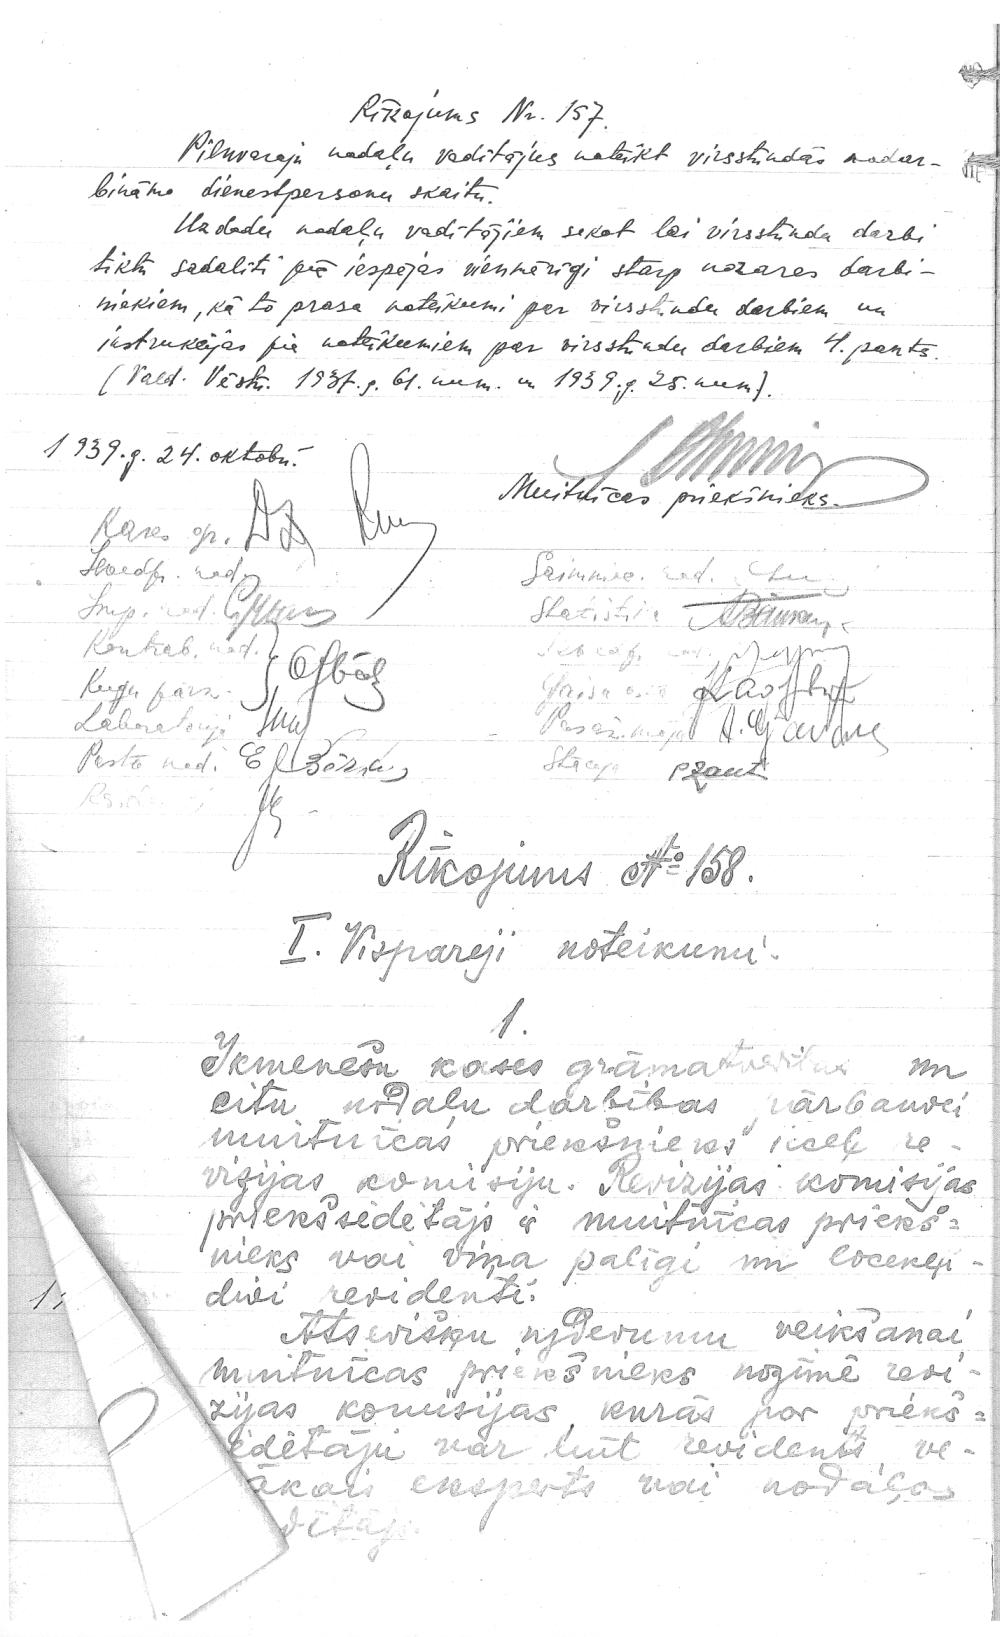 Rīkojums Nr. 157.
Pilnvaroju nodaļu vadītājus noteikt virsstundās nodar-
bināmo dienestpersonu skaitu.
Uzdodu nodaļu vadītājiem sekot lai virsstundu darbi
tiktu sadalīti pēc iespējas vienmērīgi starp nozares darbi-
niekiem, kā to prasa noteikumi par virsstundu darbiem un
instrukcijas pie noteikumiem par virsstundu darbiem 4. pants.
(Vald. Vēstn. 1937. g. 61. num. un 1939. g. 25. num.).
1939. g. 24. oktobrī.
Muitnīcas priekšnieks.
Kases op.
nod.
Saimniec. nod.
Imp. nod.
Statistika
Kontrab. nod.
Kuģu pārz.
Gaisa osta
Laboratorija
Pasaž. muiža
Pasta nod. E. Bērziņ
Stacija
Rīkojums № 158.
I. Vispareji noteikumi.
1.
Ikmenešu kases grāmatvedības un
citu nodaļu darbības pārbaudei
muitnīcas priekšnieks ieceļ re-
vizijas komisiju. Revizijas komisijas
priekšsēdētājs ir muitnīcas priekš=
nieks vai viņa palīgi un locekļi -
divi revidenti.
Atsevišķu uzdevumu veikšanai
muitnīcas priekšnieks nozīmē revi-
zijas komisijas, kurās par priekš=
ēdētāju var būt revidents, ve-
ākais eksperts vai nodaļas
dītājs.
1,